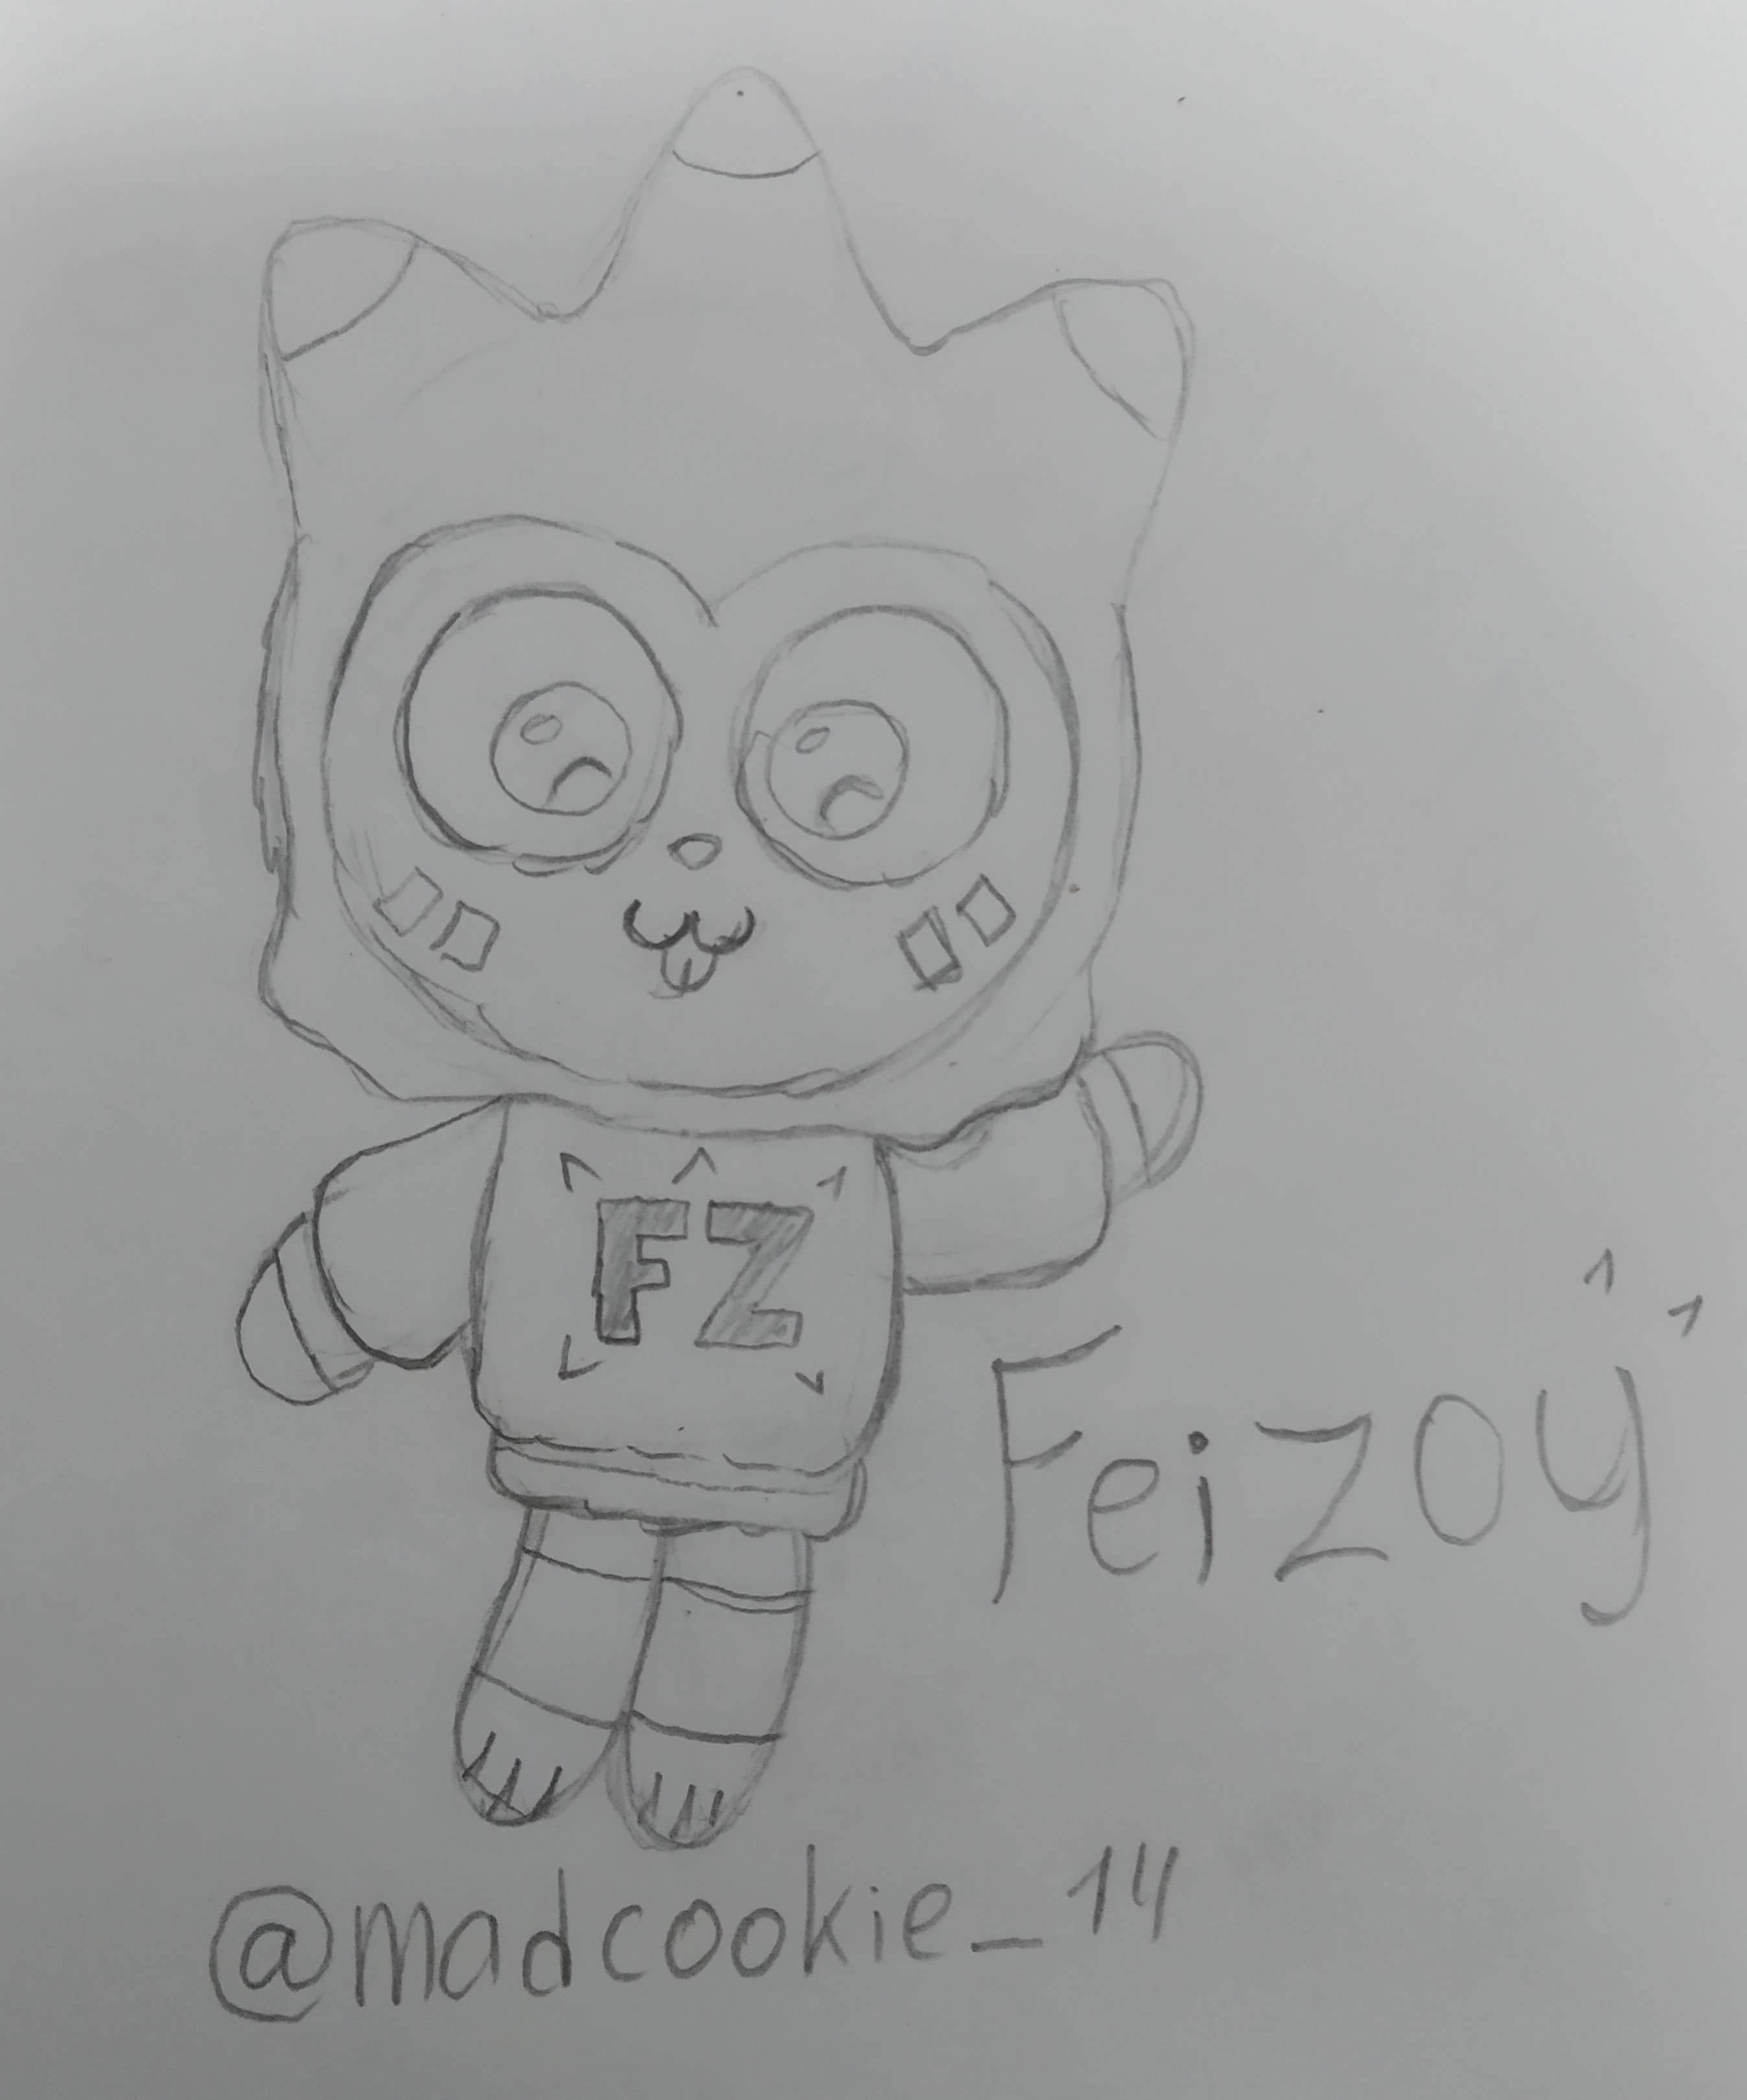 FZ
Feizoy
@madcookie_14